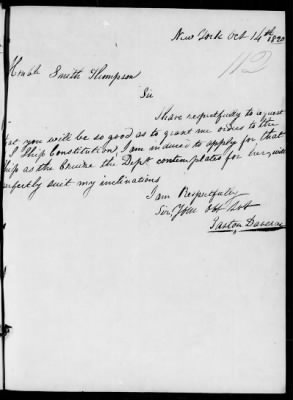 New York Oct 14th 1820
112
Honble Smith Thompson
Sir
I have respectfully to request
you will be so good as to grant me orders to the
Ship Constitution, I am induced to apply for that
ship as the Cruise the Dept contemplates for her, will
perfectly suit my inclinations
I am Respectfully
Sir, Your Obt Svt